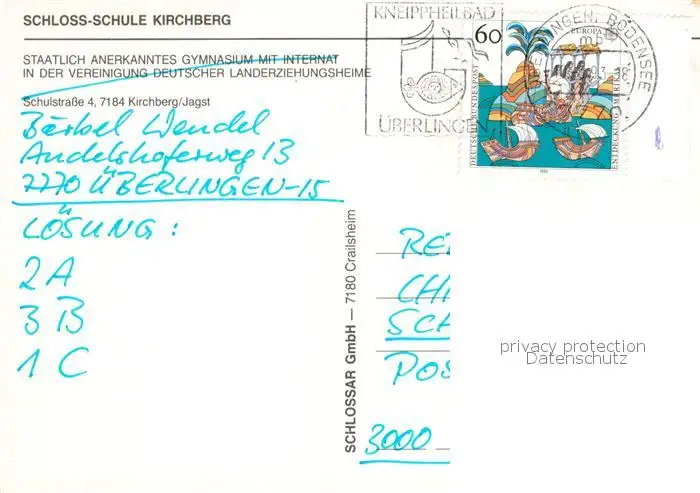 SCHLOSS-SCHULE KIRCHBERG
STAATLICH ANERKANNTES GYMNASIUM MIT INTERNAT
IN DER VEREINIGUNG DEUTSCHER LANDERZIEHUNGSHEIME
Schulstraße 4, 7184 Kirchberg/Jagst
Bärbel Wendel
Andelshoferweg 13
7770 ÜBERLINGEN-15
LÖSUNG:
2A
3B
1C
KNEIPPHEILBAD
ÜBERLINGEN
BODENSEE
60
EUROPA
DEUTSCHE BUNDESPOST
ENTDECKUNG AMERIKAS
1992
SCHLOSSAR GmbH — 7180 Crailsheim
RE
CH
SCH
POS
3000
privacy protection
Datenschutz